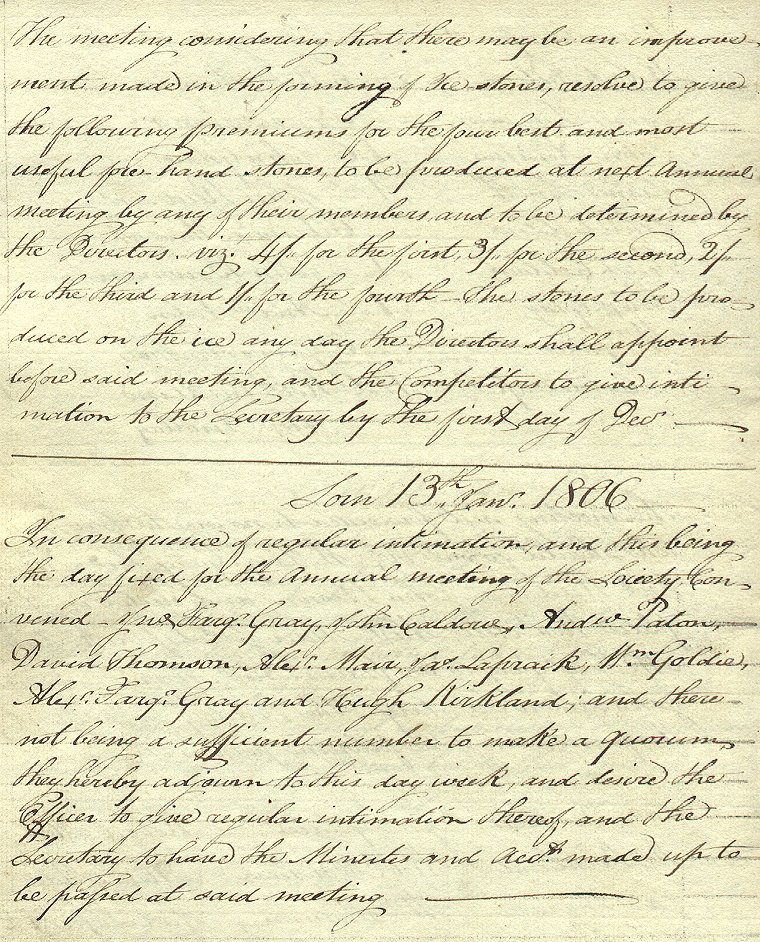 The meeting considering that there may be an improve-
ment made in the forming of Ice-stones, resolve to give
the following premiums for the four best and most
useful fore-hand stones, to be produced at next Annual
meeting by any of their members, and to be determined by
the Directors. viz. 4/. for the first, 3/. for the second, 2/.
for the third and 1/. for the fourth - The stones to be pro-
duced on the ice any day the Directors shall appoint
before said meeting, and the Competitors to give inti-
mation to the Secretary by the first day of Decr
13th Janr. 1806
In consequence of regular intimation, and this being
the day fixed for the Annual meeting of the Society Con-
vened - Jno. Farqr. Gray, John Caldow, Andw. Paton,
David Thomson, Alexr. Mair, Jas. Lapraik, Wm. Goldie,
Alexr. Farqr. Gray and Hugh Kirkland; and there
not being a sufficient number to make a quorum,
they hereby adjourn to this day week, and desire the
Officer to give regular intimation thereof, and the
Secretary to have the Minutes and Acct. made up to
be passed at said meeting